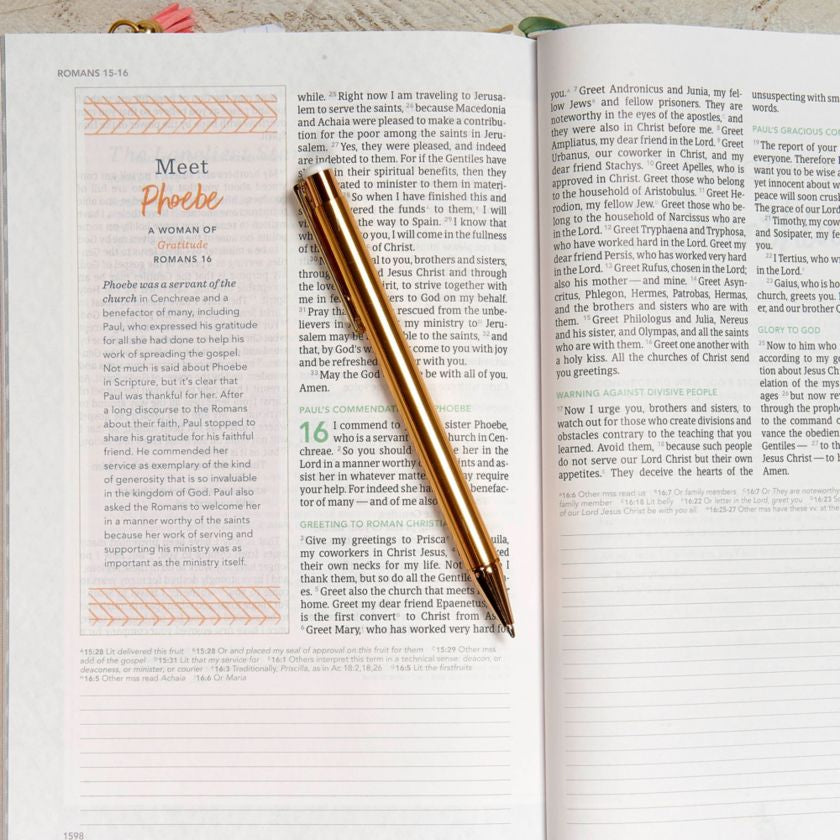 ROMANS 15-16
Meet
Phoebe
A WOMAN OF
Gratitude
ROMANS 16
Phoebe was a servant of the
church in Cenchreae and a
benefactor of many, including
Paul, who expressed his gratitude
for all she had done to help his
work of spreading the gospel.
Not much is said about Phoebe
in Scripture, but it's clear that
Paul was thankful for her. After
a long discourse to the Romans
about their faith, Paul stopped to
share his gratitude for his faithful
friend. He commended her
service as exemplary of the kind
of generosity that is so invaluable
in the kingdom of God. Paul also
asked the Romans to welcome her
in a manner worthy of the saints
because her work of serving and
supporting his ministry was as
important as the ministry itself.
while. 25 Right now I am traveling to Jerusa-
lem to serve the saints, 26 because Macedonia
and Achaia were pleased to make a contribu-
tion for the poor among the saints in Jeru-
salem. 27 Yes, they were pleased, and indeed
are indebted to them. For if the Gentiles have
in their spiritual benefits, then they
to minister to them in materi-
So when I have finished this and
the funds to them, I will
the way to Spain. 29 I know that
you, I will come in the fullness
of Christ.
to you, brothers and sisters,
Jesus Christ and through
the to strive together with
me in to God on my behalf.
31 Pray rescued from the unbe-
lievers in my ministry to Jeru-
salem may to the saints, 32 and
that, by God's come to you with joy
and be refreshed with you.
33 May the God be with all of you.
Amen.
PAUL'S PHOEBE
16 I commend to sister Phoebe,
who is a servant church in Cen-
chreae. 2 So you should her in the
Lord in a manner worthy and as-
sist her in whatever require
your help. For indeed she
tor of many — and of me
GREETING TO ROMAN
3 Give my greetings to
my coworkers in Christ Jesus,
their own necks for my life. Not
thank them, but so do all the
es. 5 Greet also the church that meets
home. Greet my dear friend Epaenetus,
is the first convert to Christ from
6 Greet Mary, who has worked very hard for
a15:28 Lit delivered this fruit b15:28 Or and placed my seal of approval on this fruit for them c15:29 Other mss
add of the gospel 15:31 Lit that my service for 16:1 Others interpret this term in a technical sense: deacon, or
deaconess, or minister, or courier 16:3 Traditionally, Priscilla, as in Ac 18:2,18,26 16:5 Lit the firstfruits
16:5 Other mss read Achaia 16:6 Or Maria
1598
you. 7 Greet Andronicus and Junia, my fel-
low Jews and fellow prisoners. They are
noteworthy in the eyes of the apostles, and
they were also in Christ before me. 8 Greet
Ampliatus, my dear friend in the Lord. 9 Greet
Urbanus, our coworker in Christ, and my
dear friend Stachys. 10 Greet Apelles, who is
approved in Christ. Greet those who belong
to the household of Aristobulus. 11 Greet He-
rodion, my fellow Jew. Greet those who be-
long to the household of Narcissus who are
in the Lord. 12 Greet Tryphaena and Tryphosa,
who have worked hard in the Lord. Greet my
dear friend Persis, who has worked very hard
in the Lord. 13 Greet Rufus, chosen in the Lord;
also his mother — and mine. 14 Greet Asyn-
critus, Phlegon, Hermes, Patrobas, Hermas,
and the brothers and sisters who are with
them. 15 Greet Philologus and Julia, Nereus
and his sister, and Olympas, and all the saints
who are with them. 16 Greet one another with
a holy kiss. All the churches of Christ send
you greetings.
WARNING AGAINST DIVISIVE PEOPLE
17 Now I urge you, brothers and sisters, to
watch out for those who create divisions and
obstacles contrary to the teaching that you
learned. Avoid them, 18 because such people
do not serve our Lord Christ but their own
appetites. They deceive the hearts of the
unsuspecting with sm
words.
PAUL'S GRACIOUS CO
19 The report of your
everyone. Therefore I
want you to be wise a
yet innocent about w
peace will soon crush
The grace of our Lord
21 Timothy, my cow
and Sosipater, my fe
you.
22 I Tertius, who w
in the Lord.
23 Gaius, who is ho
church, greets you. E
er, and our brother Q
GLORY TO GOD
25 Now to him who
according to my go
tion about Jesus Ch
elation of the mys
ages 26 but now rev
through the proph
to the command o
vance the obedien
Gentiles — 27 to th
Jesus Christ — to h
Amen.
16:6 Other mss read us 16:7 Or family members 16:7 Or They are noteworthy
family member 16:18 Lit belly 16:22 Or letter in the Lord, greet you 16:23
of our Lord Jesus Christ be with you all. 16:25-27 Other mss have these vv. at the